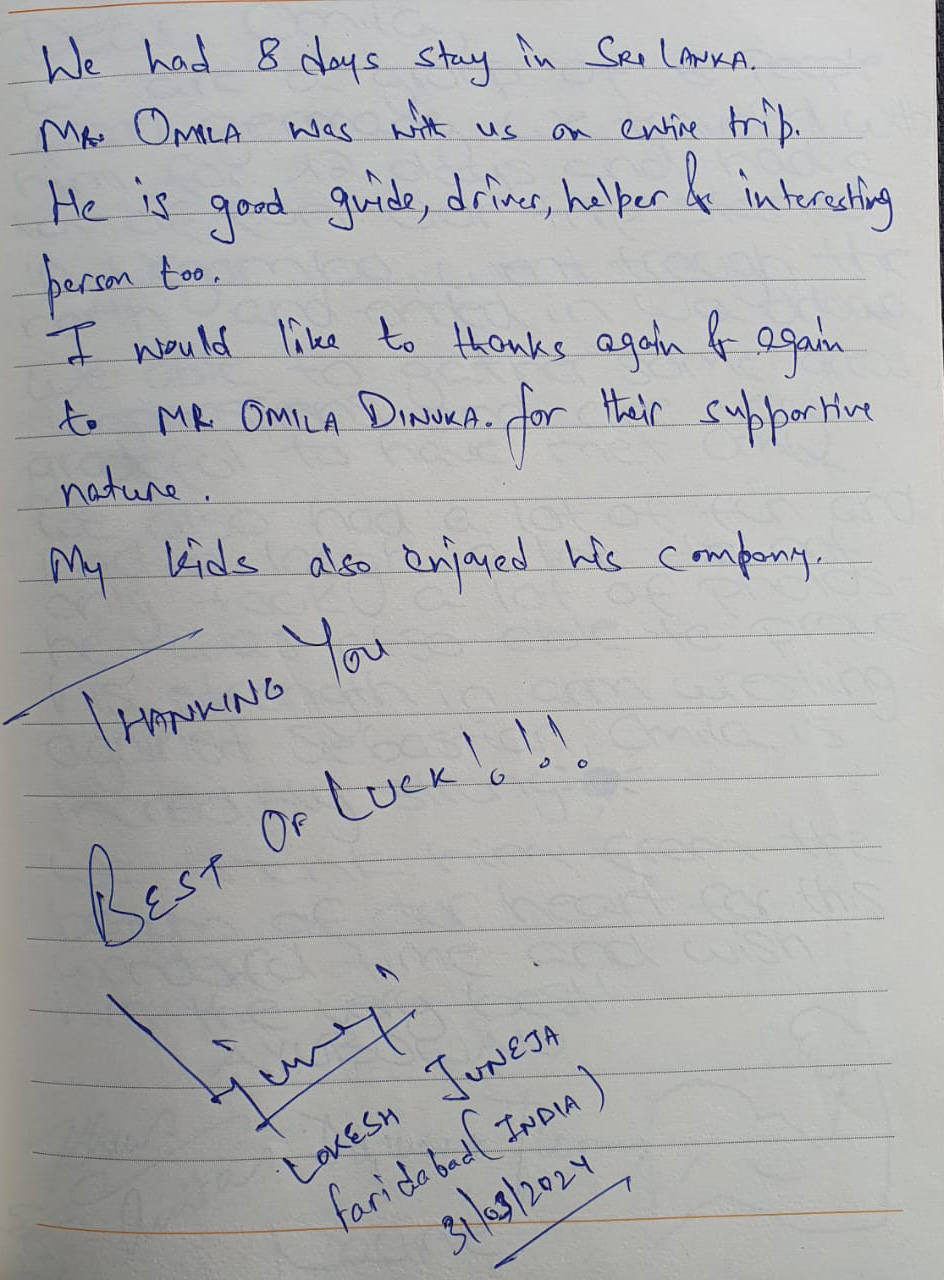 We had 8 days stay in SRI LANKA.
MR. OMILA was with us on entire trip.
He is good guide, driver, helper & interesting
person too.
I would like to thanks again & again
to MR. OMILA DINUKA. for their supportive
nature.
My kids also enjoyed his company.
THANKING YOU
BEST OF LUCK!!!
LOKESH JUNEJA
faridabad (INDIA)
31/03/2024